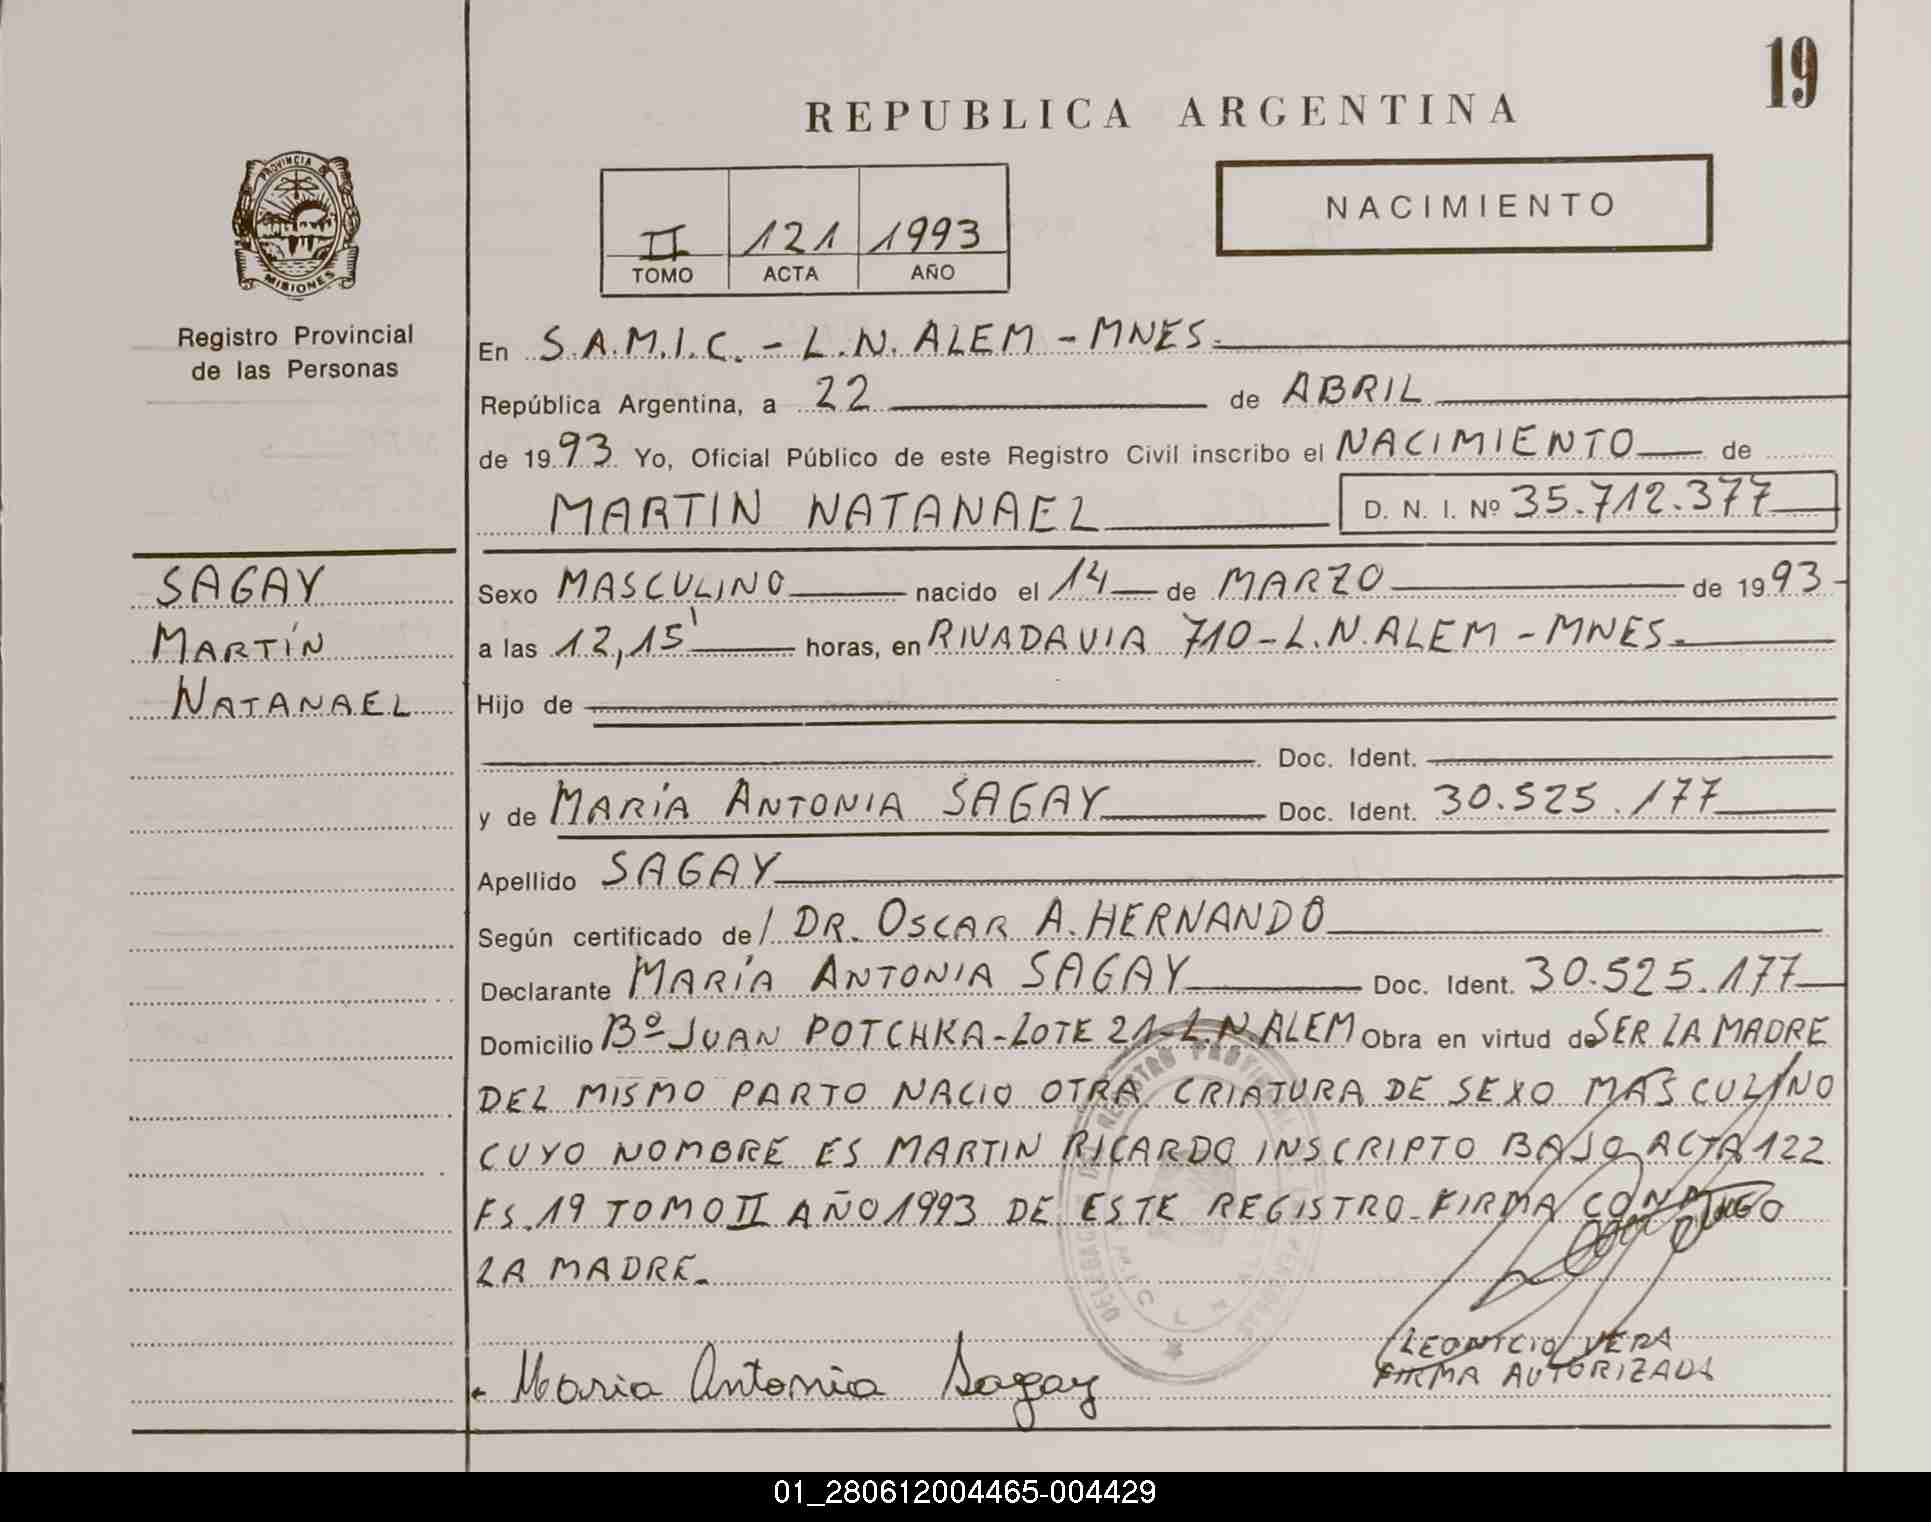 19
REPUBLICA ARGENTINA
PROVINCIA DE
MISIONES
Registro Provincial
de las Personas
II 121 1993
TOMO ACTA AÑO
NACIMIENTO
En S.A.M.I.C. - L.N. ALEM - MNES.
República Argentina, a 22 de ABRIL
de 1993 Yo, Oficial Público de este Registro Civil inscribo el NACIMIENTO de
MARTIN NATANAEL D. N. I. Nº 35.712.377
SAGAY
MARTÍN
NATANAEL
Sexo MASCULINO nacido el 14 de MARZO de 1993
a las 12,15' horas, en RIVADAVIA 710 - L.N. ALEM - MNES.
Hijo de
Doc. Ident.
y de MARÍA ANTONIA SAGAY Doc. Ident. 30.525.177
Apellido SAGAY
Según certificado de/ DR. OSCAR A. HERNANDO
Declarante MARÍA ANTONIA SAGAY Doc. Ident. 30.525.177
Domicilio Bº JUAN POTCHKA - LOTE 21 - L.N. ALEM Obra en virtud de SER LA MADRE
DEL MISMO PARTO NACIO OTRA CRIATURA DE SEXO MASCULINO
CUYO NOMBRE ES MARTIN RICARDO INSCRIPTO BAJO ACTA 122
FS. 19 TOMO II AÑO 1993 DE ESTE REGISTRO - FIRMA CONMIGO
LA MADRE.
Maria Antonia Sagay
LEONICIO VERA
FIRMA AUTORIZADA
01_280612004465-004429